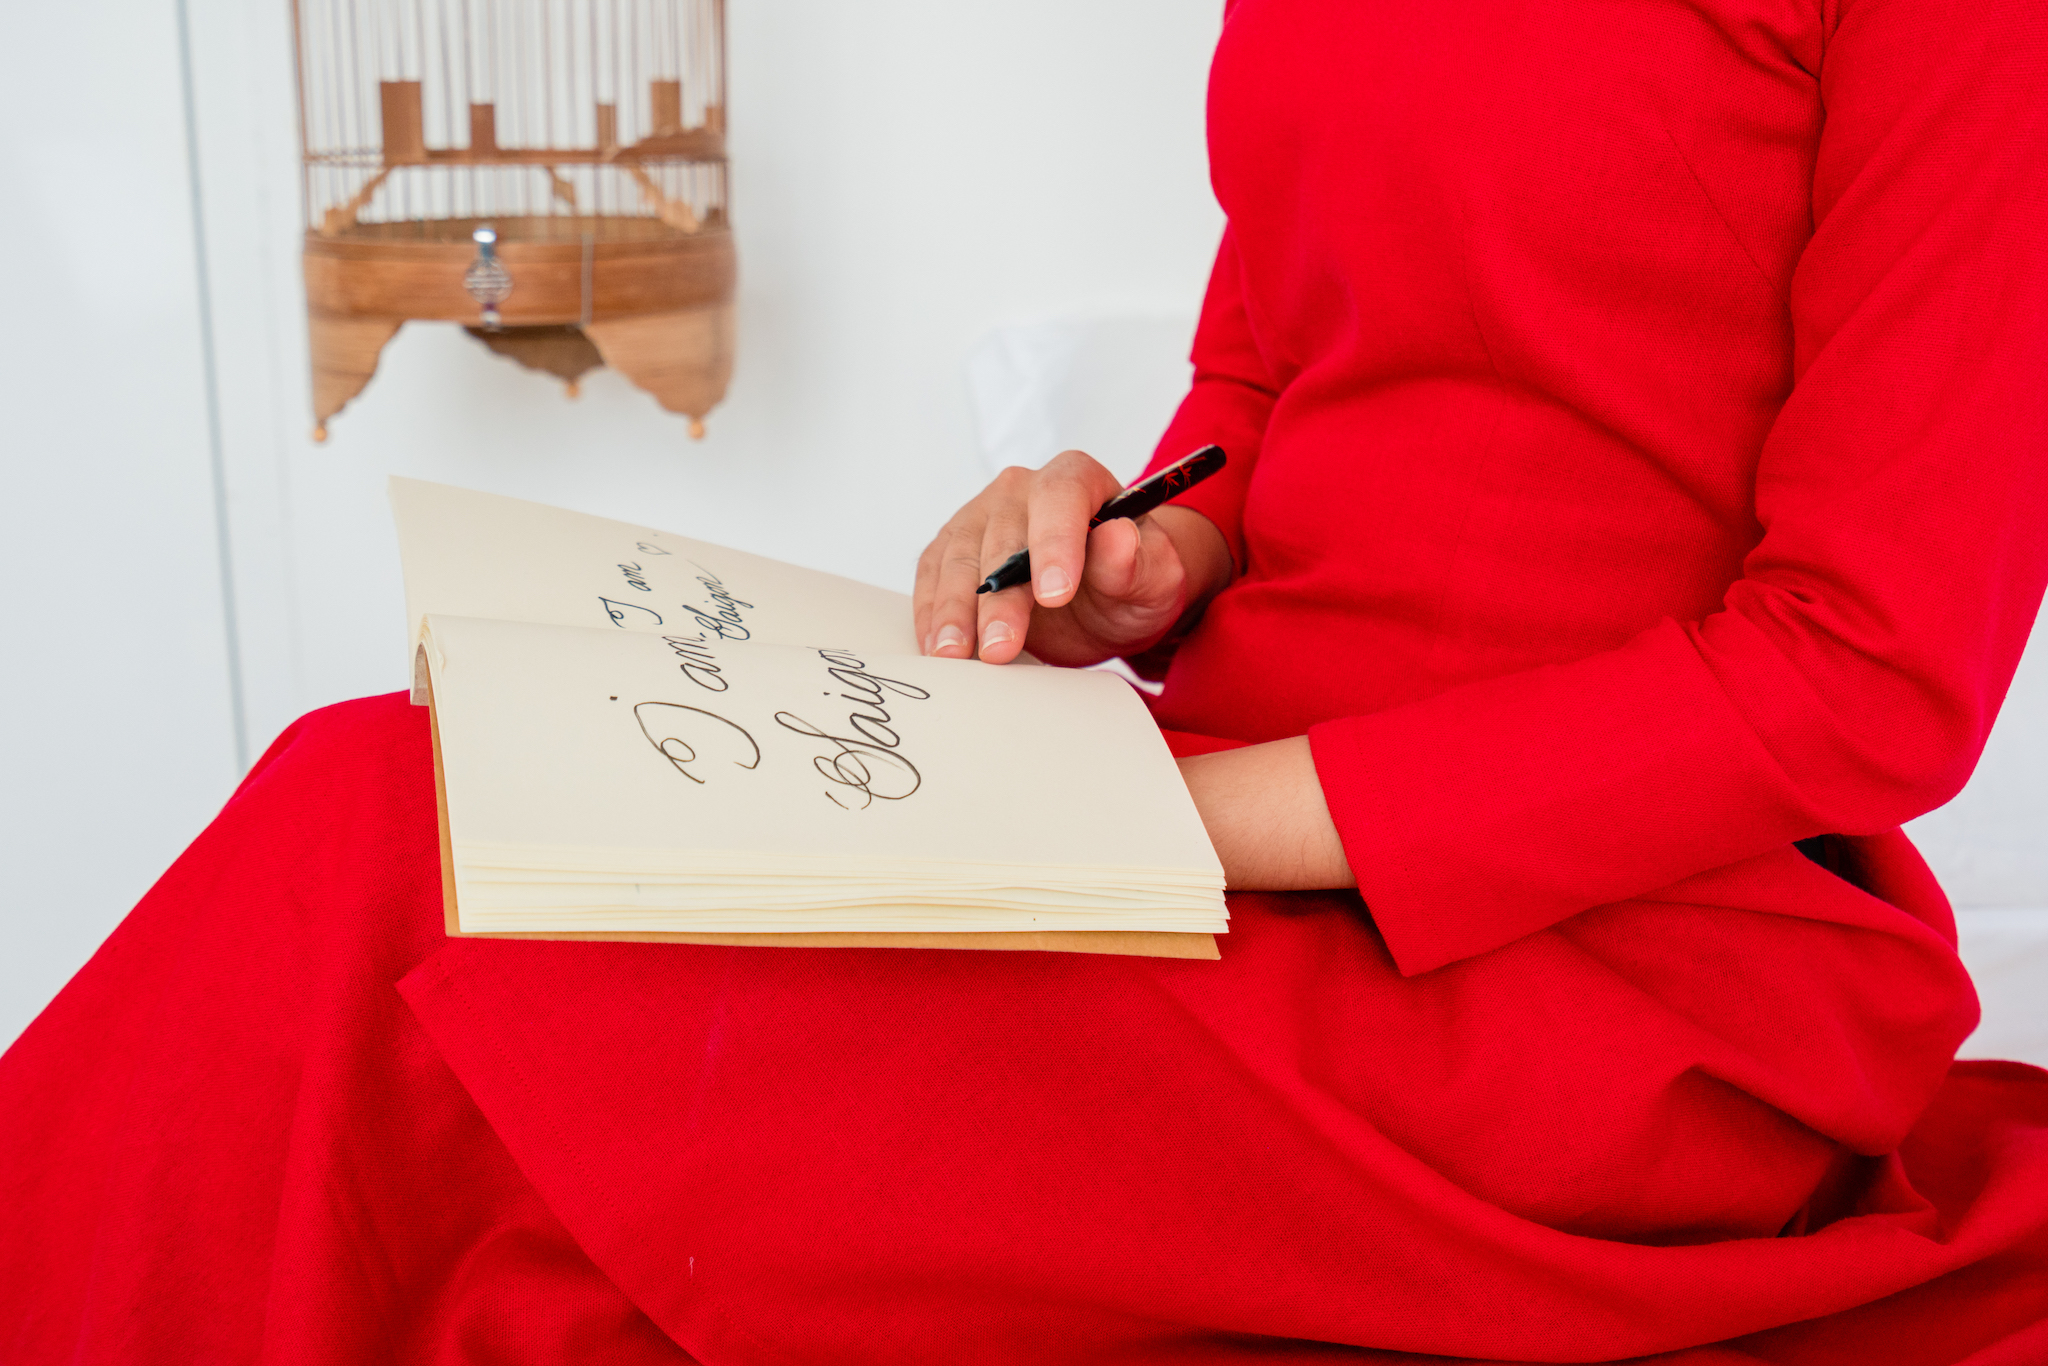 I am
Saigon
I am
Saigon